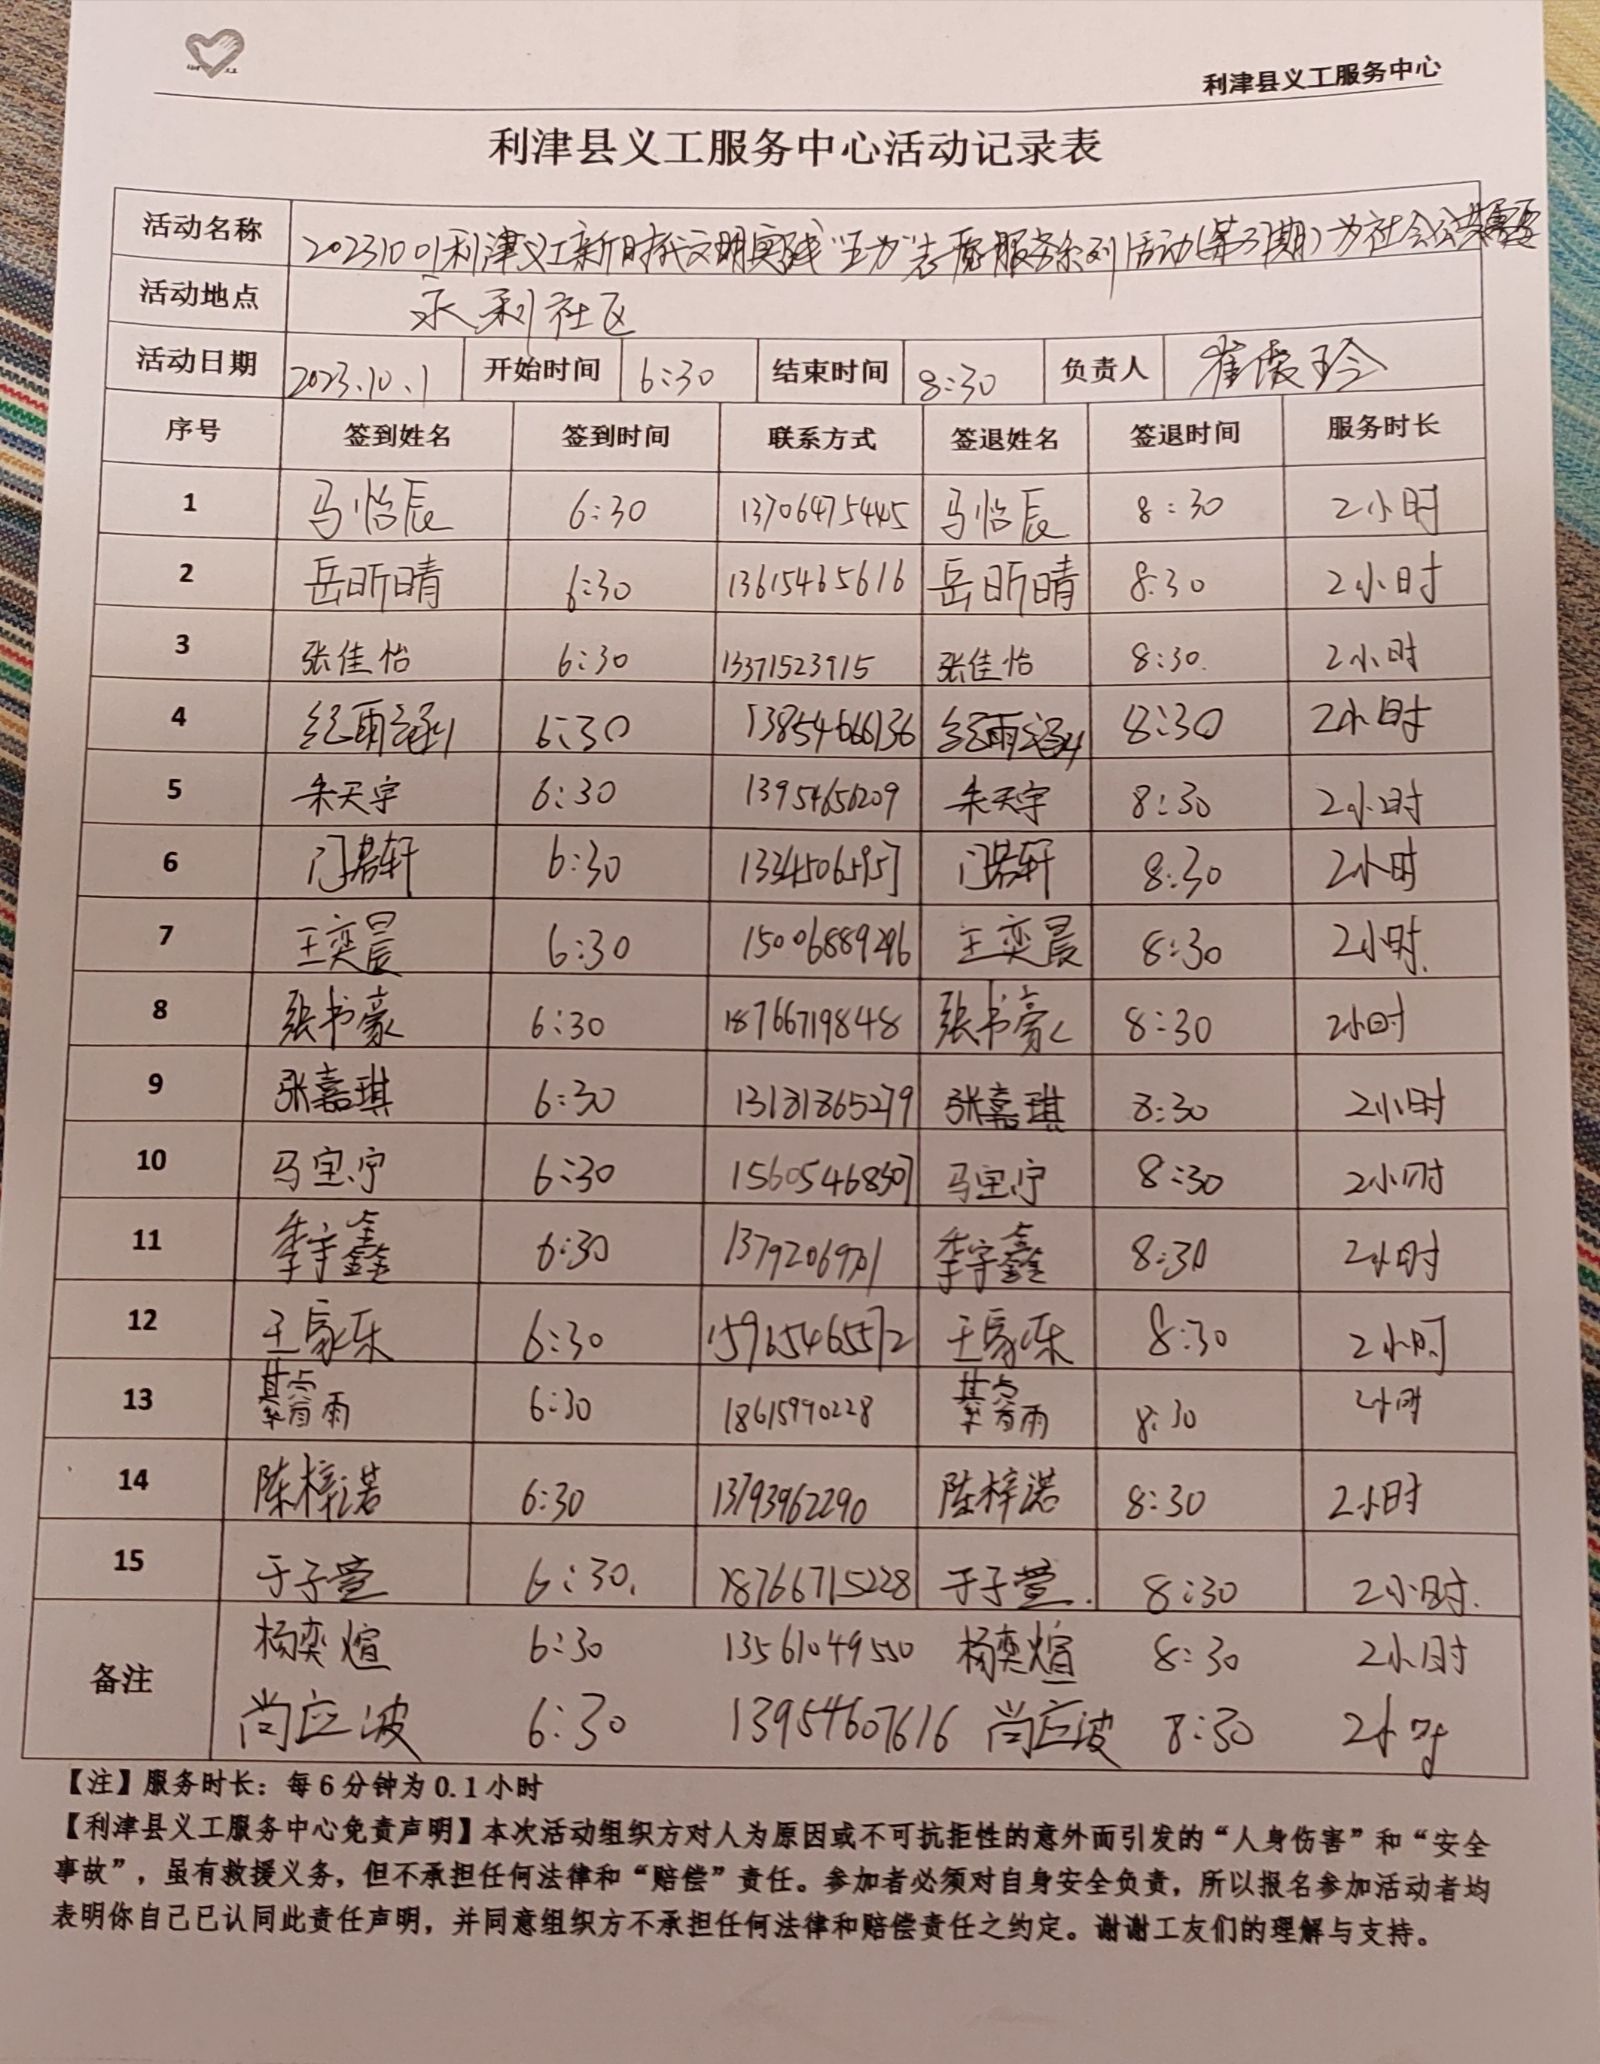 利津县义工服务中心
利津县义工服务中心活动记录表
活动名称 20231001利津义工新时代文明实践"五为"志愿服务系列活动(第31期)为社会公共需要
活动地点 永利社区
活动日期 2023.10.1 开始时间 6:30 结束时间 8:30 负责人 崔俊玲
序号 签到姓名 签到时间 联系方式 签退姓名 签退时间 服务时长
1 马怡辰 6:30 13706475445 马怡辰 8:30 2小时
2 岳昕晴 6:30 13615465616 岳昕晴 8:30 2小时
3 张佳怡 6:30 13371523915 张佳怡 8:30 2小时
4 纪雨涵 6:30 13854666136 纪雨涵 8:30 2小时
5 朱天宇 6:30 13954656209 朱天宇 8:30 2小时
6 门若轩 6:30 门若轩 8:30 2小时
7 王奕晨 6:30 15006889296 王奕晨 8:30 2小时
8 张书豪 6:30 18766719848 张书豪 8:30 2小时
9 张嘉琪 6:30 13181865279 张嘉琪 8:30 2小时
10 马宝宁 6:30 15605468507 马宝宁 8:30 2小时
11 李宇鑫 6:30 李宇鑫 8:30 2小时
12 王家乐 6:30 15965465572 王家乐 8:30 2小时
13 綦睿雨 6:30 18615990228 綦睿雨 8:30 2小时
14 陈梓诺 6:30 13793962290 陈梓诺 8:30 2小时
15 于子萱 6:30 18766715228 于子萱 8:30 2小时
备注 杨奕煊 6:30 13561049550 杨奕煊 8:30 2小时
尚应波 6:30 13954607616 尚应波 8:30 2小时
【注】服务时长：每6分钟为0.1小时
【利津县义工服务中心免责声明】本次活动组织方对人为原因或不可抗拒性的意外而引发的“人身伤害”和“安全
事故”，虽有救援义务，但不承担任何法律和“赔偿”责任。参加者必须对自身安全负责，所以报名参加活动者均
表明你自己已认同此责任声明，并同意组织方不承担任何法律和赔偿责任之约定。谢谢工友们的理解与支持。